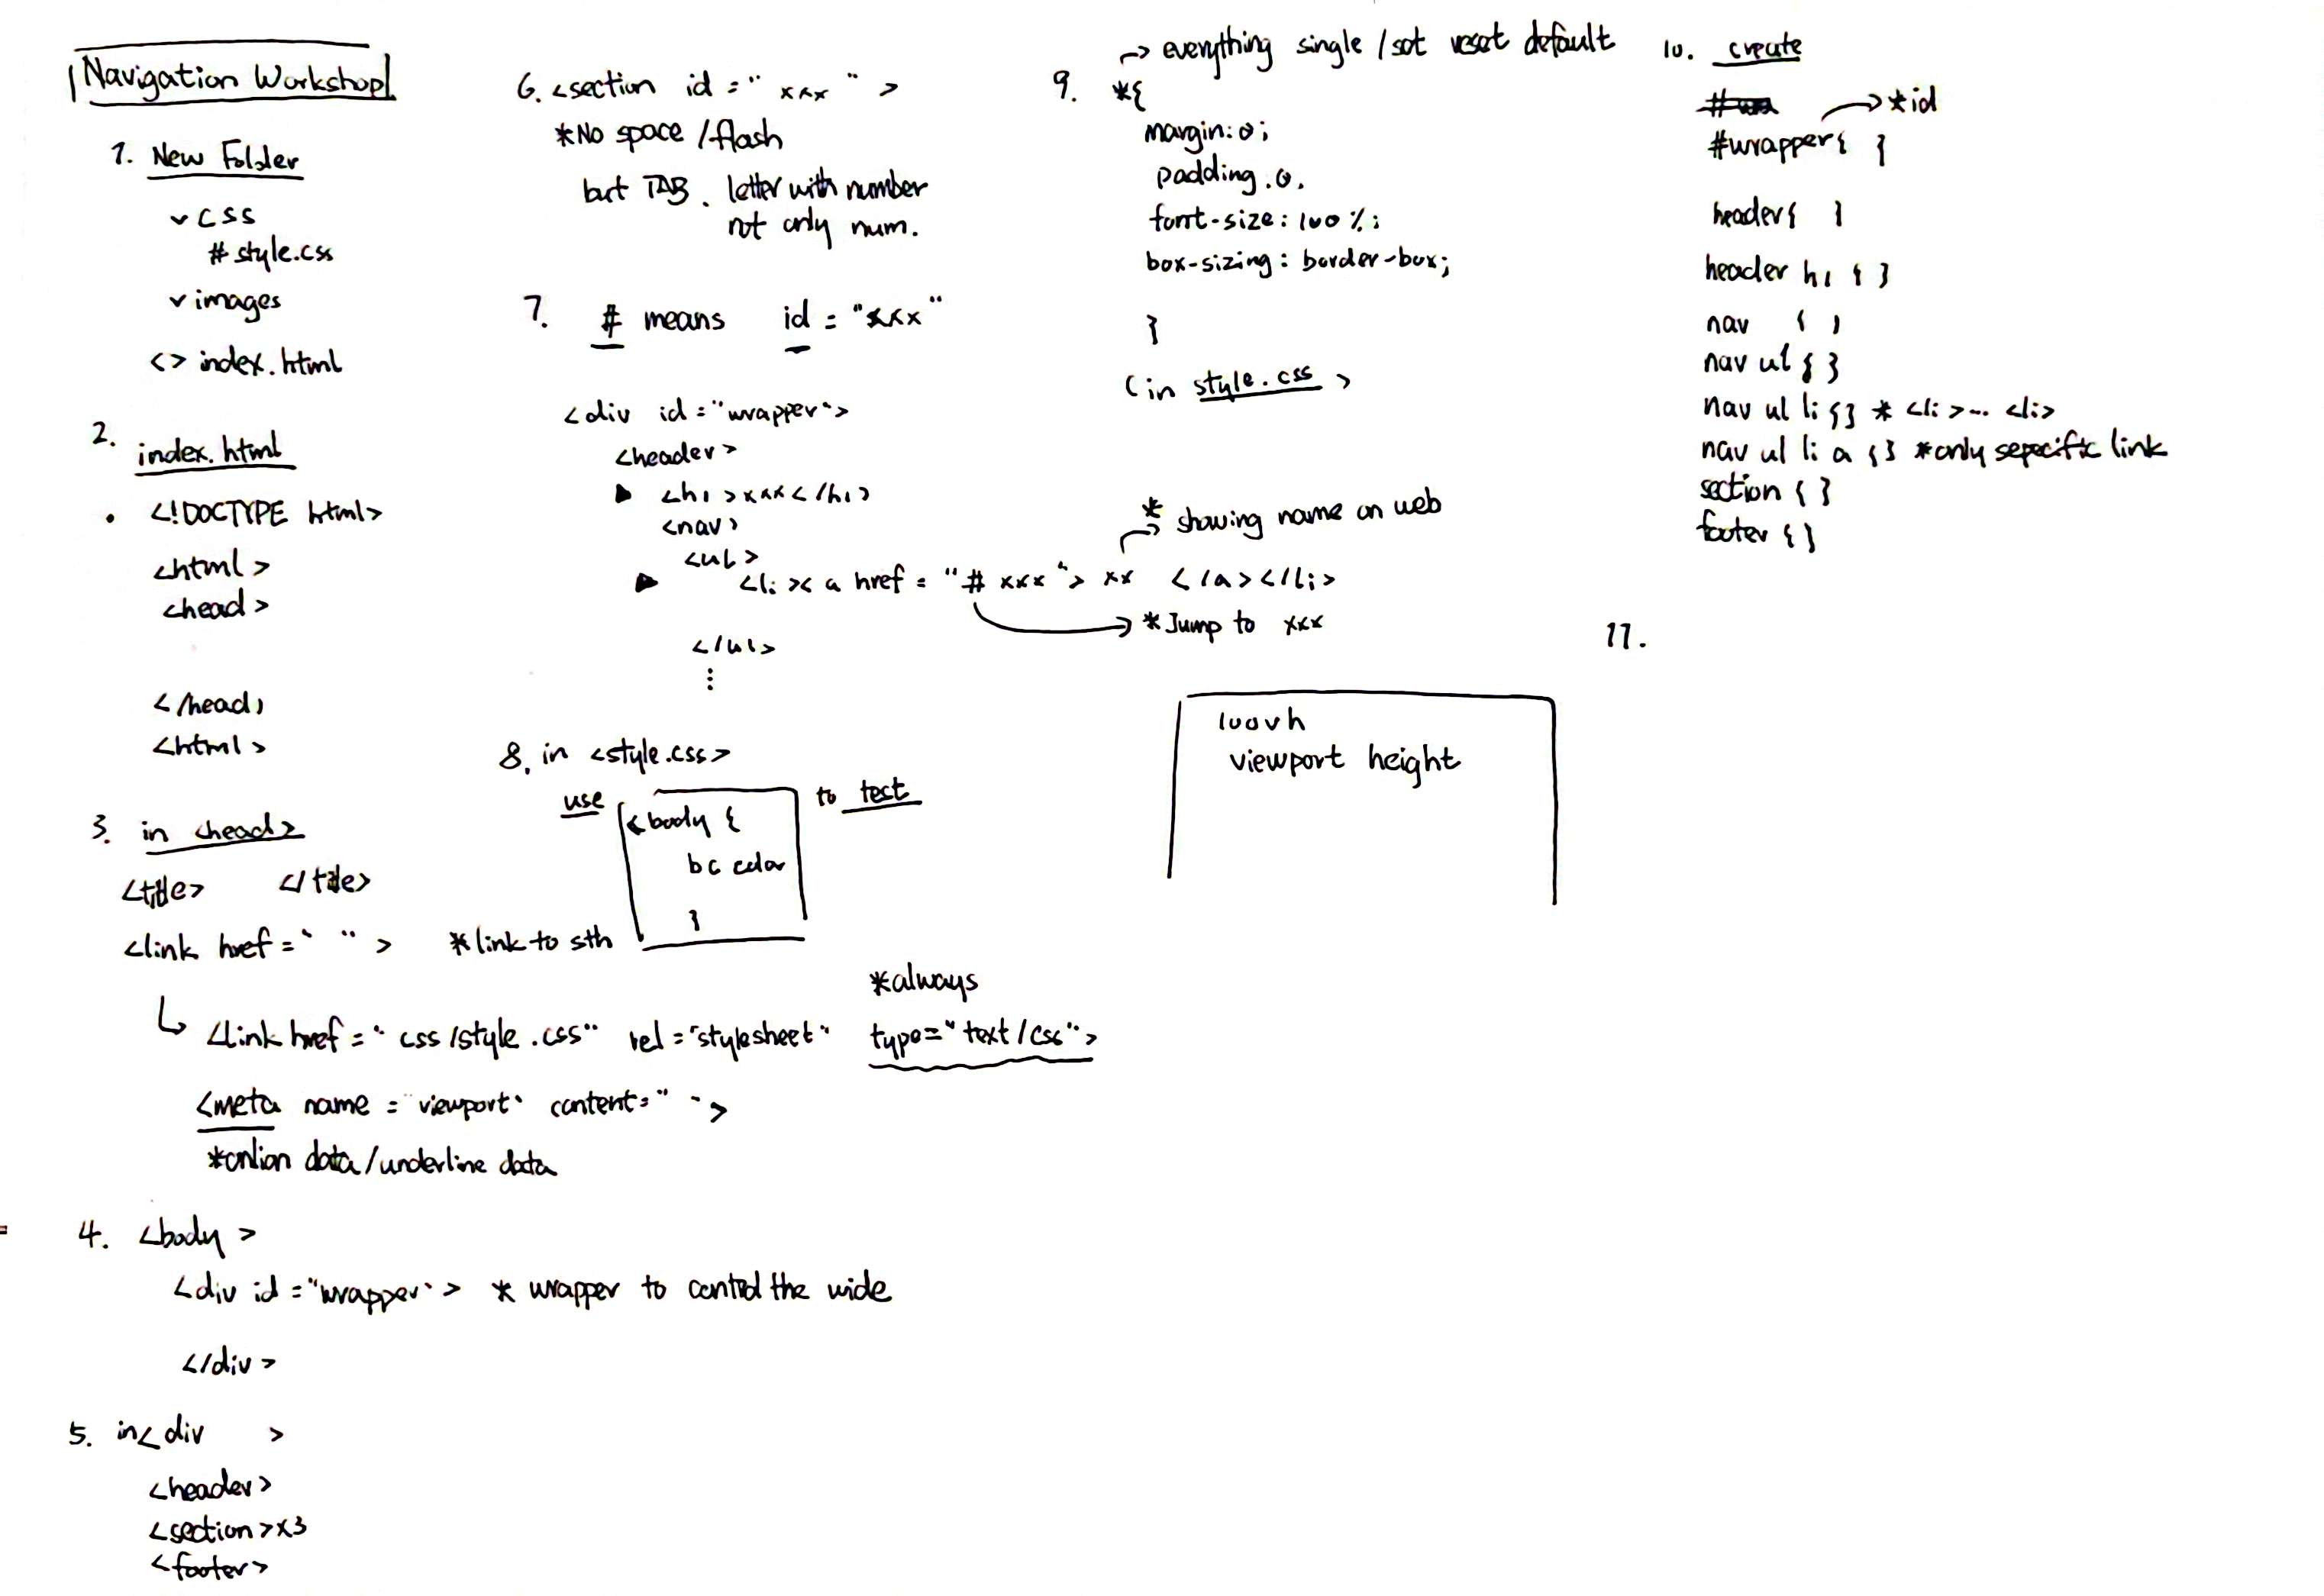 Navigation Workshop
1. New Folder
v CSS
# style.css
v images
<> index.html
2. index.html
• <!DOCTYPE html>
<html>
<head>
</head>
<html>
3. in <head>
<title> </title>
<link href=" "> *link to sth
<link href="css/style.css" rel="stylesheet" type="text/css">
*always
<meta name="viewport" content=" ">
*onlion data/underline data
4. <body>
<div id="wrapper"> * wrapper to control the wide
</div>
5. in<div >
<header>
<section>x3
<footer>
6. <section id="xxx">
*No space/flash
but TAB. letter with number
not only num.
7. # means id="xxx"
<div id="wrapper">
<header>
▶ <h1>xxx</h1>
<nav>
<ul>
* showing name on web
▶ <li><a href="#xxx"> xx </a></li>
*Jump to xxx
</ul>
⋮
8. in <style.css>
use <body { to test
bc color
}
9. *{
→ everything single/set reset default
margin: 0;
padding.0.
font-size: 100%;
box-sizing: border-box;
}
(in style.css>
10. create
→ *id
#wrapper{ }
header{ }
header h1 { }
nav { }
nav ul { }
nav ul li {} * <li>... <li>
nav ul li a {} *only sepecific link
section { }
footer {}
11.
100vh
viewport height